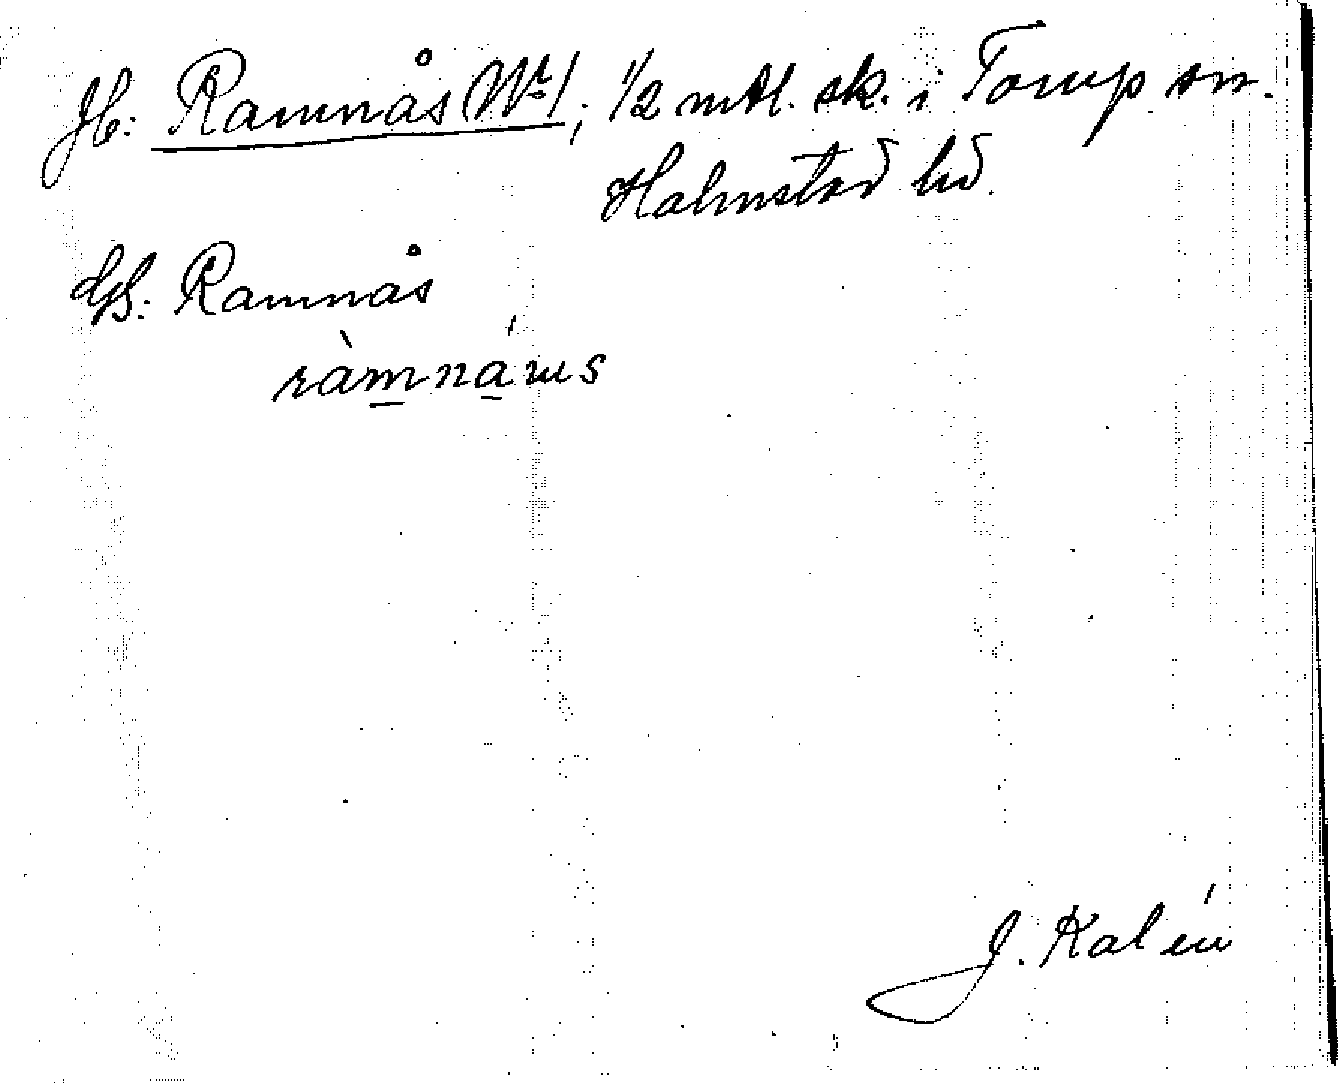 Jb: Ramnås Nr 1; 1/2 mtl. sk. i Torup sn.
Halmstad hd.
Gs: Ramnås
ràmná
J. Kalén